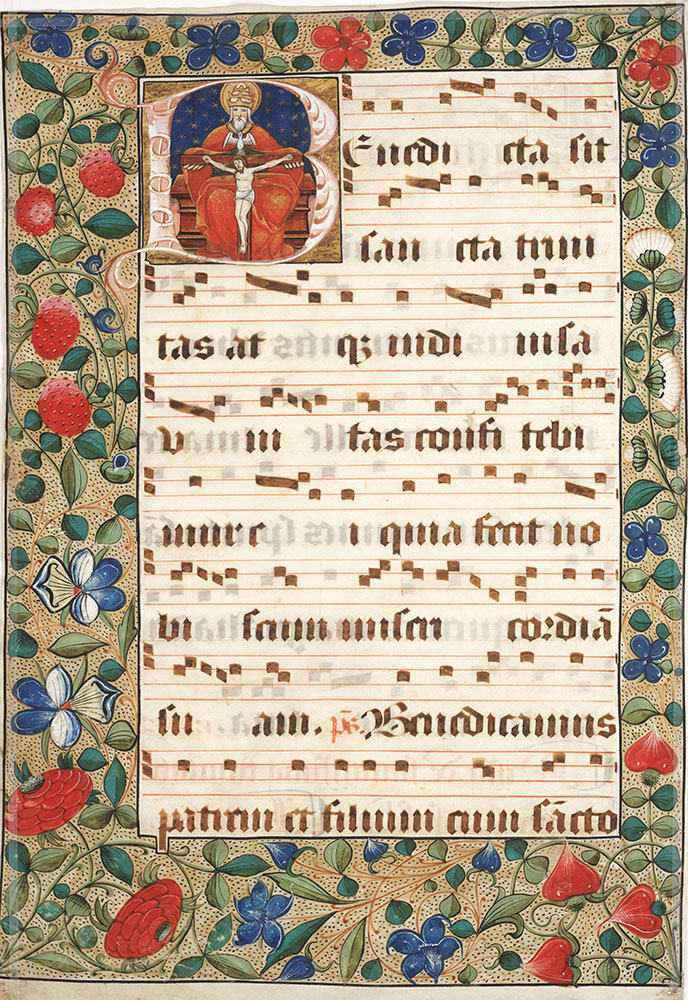 Benedi cta sit
san cta trini
tas at qz indi uisa
v ni tas confi tebi
mur e i quia fecit no
bi scum miseri cordiā
su am. ps Benedicamus
patrem et filium cum sācto